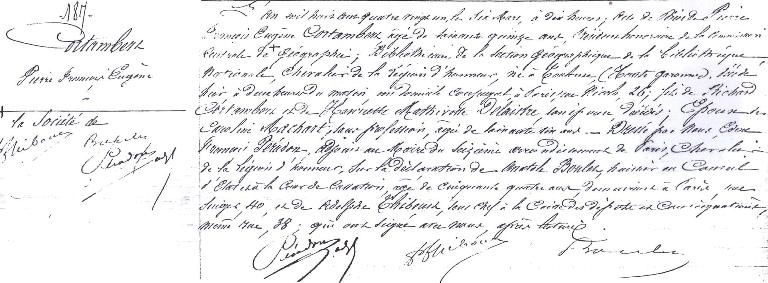 187
Cortambert
Pierre François Eugène
la Société de
L'an mil huit cent quatre vingt un, le six Mars, à dix heures, acte de décès de Pierre
François Eugène Cortambert âgé de soixante quinze ans, Président honoraire de la Commission
Centrale de Géographie; Bibliothécaire de la section géographique de la bibliothèque
Nationale, Chevalier de la Légion d'honneur, né à Toulouse (Haute Garonne), décédé
hier à deux heures du matin au domicile conjugal à Paris, rue 26; fils de Richard
Cortambert et de Henriette Delaitre, son épouse, décédés; Epoux de
Caroline Machart, sans profession, âgée de soixante six ans. — Dressé par Nous
François adjoint au Maire du seizième arrondissement de Paris, Chevalier
de la Légion d'honneur, sur la déclaration de Boulet, huissier au Conseil
d'Etat et à la Cour de Cassation, âgé de cinquante quatre ans demeurant à Paris, rue
40, et de Adolphe Thibout, sous chef à la Caisse des dépôts et Consignations,
même rue, 38; qui ont signé avec nous après lecture.